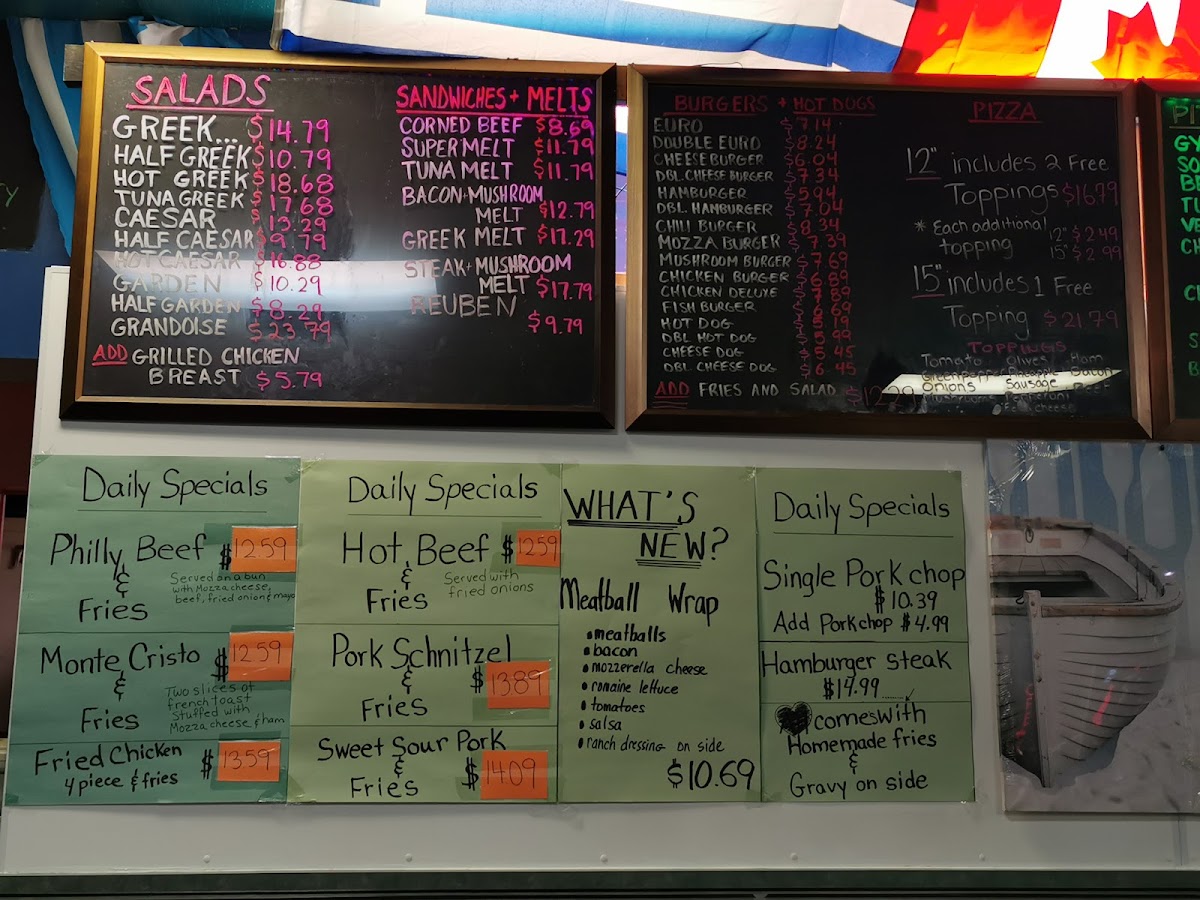 SALADS
GREEK... $14.79
HALF GREEK $10.79
HOT GREEK $18.68
TUNA GREEK $17.68
CAESAR $13.29
HALF CAESAR $9.79
HOT CAESAR $16.88
GARDEN $10.29
HALF GARDEN $8.29
GRANDOISE $23.79
ADD GRILLED CHICKEN
BREAST $5.79
SANDWICHES + MELTS
CORNED BEEF $8.69
SUPER MELT $11.79
TUNA MELT $11.79
BACON+MUSHROOM
MELT $12.79
GREEK MELT $17.29
STEAK+MUSHROOM
MELT $17.79
REUBEN
$9.79
BURGERS + HOT DOGS
EURO $7.14
DOUBLE EURO $8.24
CHEESEBURGER $6.04
DBL. CHEESE BURGER $7.34
HAMBURGER $5.94
DBL. HAMBURGER $7.04
CHILI BURGER $8.34
MOZZA BURGER $7.39
MUSHROOM BURGER $7.69
CHICKEN BURGER $6.89
CHICKEN DELUXE $7.89
FISH BURGER $6.69
HOT DOG $5.19
DBL HOT DOG $5.99
CHEESE DOG $5.45
DBL. CHEESE DOG $6.45
ADD FRIES AND SALAD $12.29
PIZZA
12" includes 2 Free
Toppings $16.79
* Each additional 12" $2.49
topping 15" $2.99
15" includes 1 Free
Topping $21.79
TOPPINGS
Tomato Olives Ham
Green Pepper Pineapple Bacon
Onions Sausage
Mushrooms Pepperoni Beef
Feta Cheese
Daily Specials
Philly Beef $12.59
&
Fries
Served on a bun
with Mozza cheese,
beef, fried onion & mayo
Monte Cristo $12.59
&
Fries
Two slices of
french toast
Stuffed with
Mozza cheese & ham
Fried Chicken $13.59
4 piece & fries
Daily Specials
Hot Beef $12.59
&
Fries
Served with
fried onions
Pork Schnitzel
&
Fries $13.89
Sweet Sour Pork
&
Fries $14.09
WHAT'S
NEW?
Meatball Wrap
• meatballs
• bacon
• mozzerella cheese
• romaine lettuce
• tomatoes
• salsa
• ranch dressing on side
$10.69
Daily Specials
Single Pork chop
$10.39
Add Porkchop $4.99
Hamburger steak
$14.99
comes with
Homemade fries
&
Gravy on side